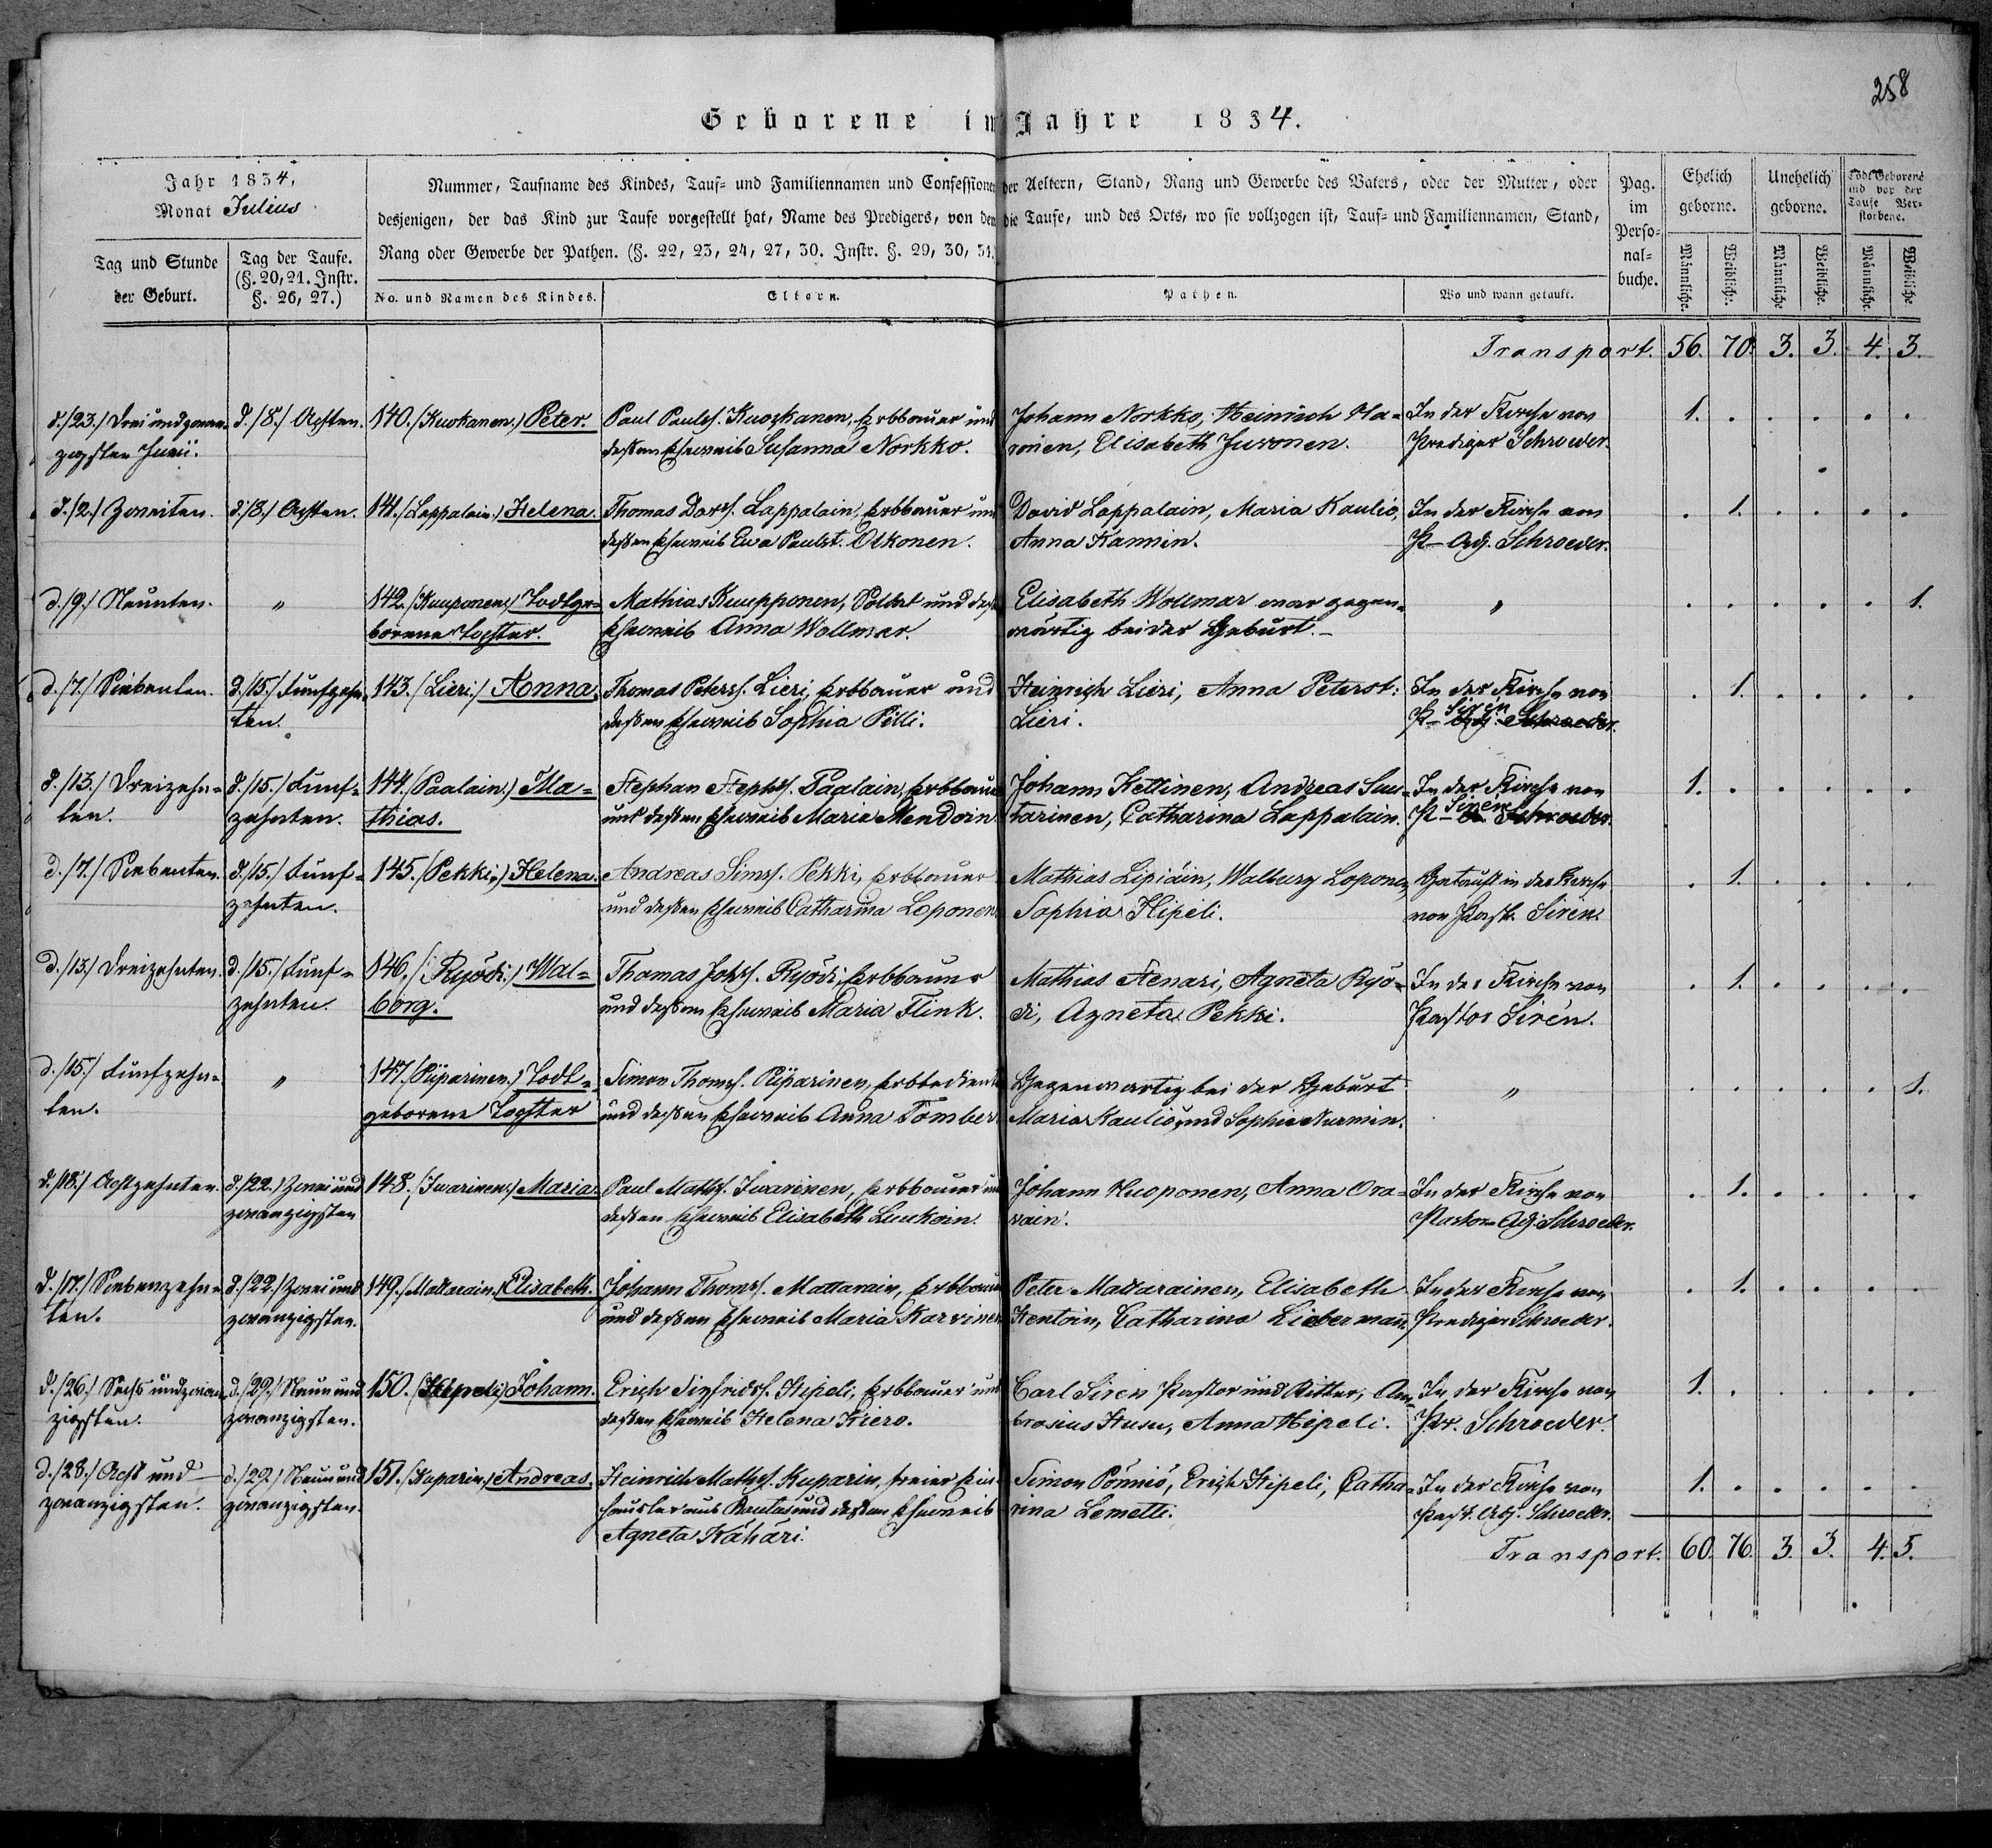 258
Geborene im Jahre 1834.
Jahr 1834,
Monat Julius
Tag und Stunde
der Geburt.
Tag der Taufe.
(§. 20, 21. Instr.
§. 26, 27.)
Nummer, Taufname des Kindes, Tauf- und Familiennamen und Confessionen der Aeltern, Stand, Rang und Gewerbe des Vaters, oder der Mutter, oder
desjenigen, der das Kind zur Taufe vorgestellt hat, Name des Predigers, von dem die Taufe, und des Orts, wo sie vollzogen ist, Tauf- und Familiennamen, Stand,
Rang oder Gewerbe der Pathen. (§. 22, 23, 24, 27, 30. Instr. §. 29, 30, 31.
No. und Namen des Kindes.
Eltern.
Pathen.
Wo und wann getauft.
Pag.
im
Perso-
nal-
buche.
Ehelich
geborne.
Unehelich
geborne.
Todt Geborene
und vor der
Taufe Ver-
storbene.
Männliche.
Weibliche.
Männliche
Weibliche.
Männliche.
Weibliche
Transport. 56. 70. 3. 3. 4. 3.
d./23./ Drei und zwan-
zigsten Junii.
d./8./ Achten.
140. (Kuokanen.) Peter.
Paul Paulss. Kuokanen, Erbbauer und
dessen Eheweib Susanna Norkko.
Johann Norkko, Heinrich Ha-
ronen, Elisabeth Juvonen.
In der Kirche von
Prediger Schroeder.
1. . . . . .
d./2./ Zweiten.
d./8./ Achten.
141. (Lappalain.) Helena.
Thomas Davss. Lappalain, Erbbauer und
dessen Eheweib Eva Paulst. Olkonen.
David Lappalain, Maria Kaulio,
Anna Kannin.
In der Kirche von
P- Adj. Schroeder.
. 1. . . . .
d./9./ Neunten.
"
142. (Kuuponen.) Todtge-
borene Tochter.
Mathias Kuupponen, Soldat und dessen
Eheweib Anna Wollmar.
Elisabeth Wollmar war gegen-
wärtig bei der Geburt.-
"
. . . . . 1.
d./7./ Siebenten.
d./15./ Funfzehn-
ten.
143. (Lieri.) Anna.
Thomas Peterss. Lieri, Erbbauer und
dessen Eheweib Sophia Pilli.
Heinrich Lieri, Anna Peterst:
Lieri.
In der Kirche von
Sirén
P- Adj. Schroeder.
. 1. . . . .
d./13./ Dreizehn-
ten.
d./15./ Funf-
zehnten.
144. (Paalain.) Ma-
thias.
Stephan Stephss. Paalain, Erbbauer
und dessen Eheweib Maria Mendoin
Johann Kettinen, Andreas Suu-
tarinen, Catharina Lappalain.
In der Kirche von
Sirén
P- Schroeder.
1. . . . . .
d./7./ Siebenten.
d./15./ Funf-
zehnten.
145. (Pekki.) Helena.
Andreas Simss. Pekki, Erbbauer
und dessen Eheweib Catharina Loponen
Mathias Lipiäin, Walburg Loponen,
Sophia Hipeli.
Getauft in der Kirche
von Past. Sirén.
. 1. . . . .
d./13./ Dreizehnten.
d./15./ Funf-
zehnten.
146. (Ryödi.) Wal-
borg.
Thomas Johss. Ryödi, Erbbauer
und dessen Eheweib Maria Flink.
Mathias Henari, Agneta Ryö-
di, Agneta Pekki.
In der Kirche von
Pastor Sirén.
. 1. . . . .
d./15./ Funfzehn-
ten.
"
147. (Piiparinen.) Todt-
geborene Tochter
Simon Thomss. Piiparinen, Erbbediente
und dessen Eheweib Anna Tomber
Gegenwärtig bei der Geburt
Maria Kaulio und Sophia Nurmin.
"
. . . . . 1.
d./18./ Achtzehnten.
d./22./ Zwei und
zwanzigsten
148. (Iwarinen.) Maria.
Paul Mathss. Iwarinen, Erbbauer und
dessen Eheweib Elisabeth Luukoin.
Johann Huoponen, Anna Ora-
vain.
In der Kirche von
Pastor-Adj. Schroeder.
. 1. . . . .
d./17./ Siebenzehn-
ten.
d./22./ Zwei und
zwanzigsten.
149. (Mattarain.) Elisabeth.
Johann Thomss. Mattarain, Erbbauer
und dessen Eheweib Maria Karvinen
Peter Mattarainen, Elisabeth
Hentoin, Catharina Liebermann.
In der Kirche von
Prediger Schroeder.
. 1. . . . .
d./26./ Sechs und zwan-
zigsten.
d./29./ Neun und
zwanzigsten.
150. (Hipeli) Johann.
Erich Sigfridss. Hipeli, Erbbauer und
dessen Eheweib Helena Kiero.
Carl Siren Pastor und Ritter, Am-
brosius Husu, Anna Hipeli.
In der Kirche von
Pr. Schroeder.
1. . . . . .
d./28./ Acht und
zwanzigsten.
d./29./ Neun und
zwanzigsten.
151. (Kuparin.) Andreas.
Heinrich Mathss. Kuparin, freier Ein-
häusler aus Rautus und dessen Eheweib
Agneta Kähäri.
Simon Pönniö, Erich Hipeli, Catha-
rina Lemetti.
In der Kirche von
Past. Adj. Schroeder.
1. . . . . .
Transport. 60. 76. 3. 3. 4. 5.